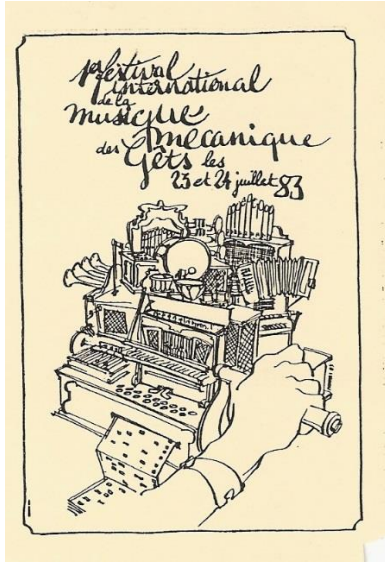 1er festival
international
de la
musique
mécanique
des Gets les
23 et 24 juillet 83